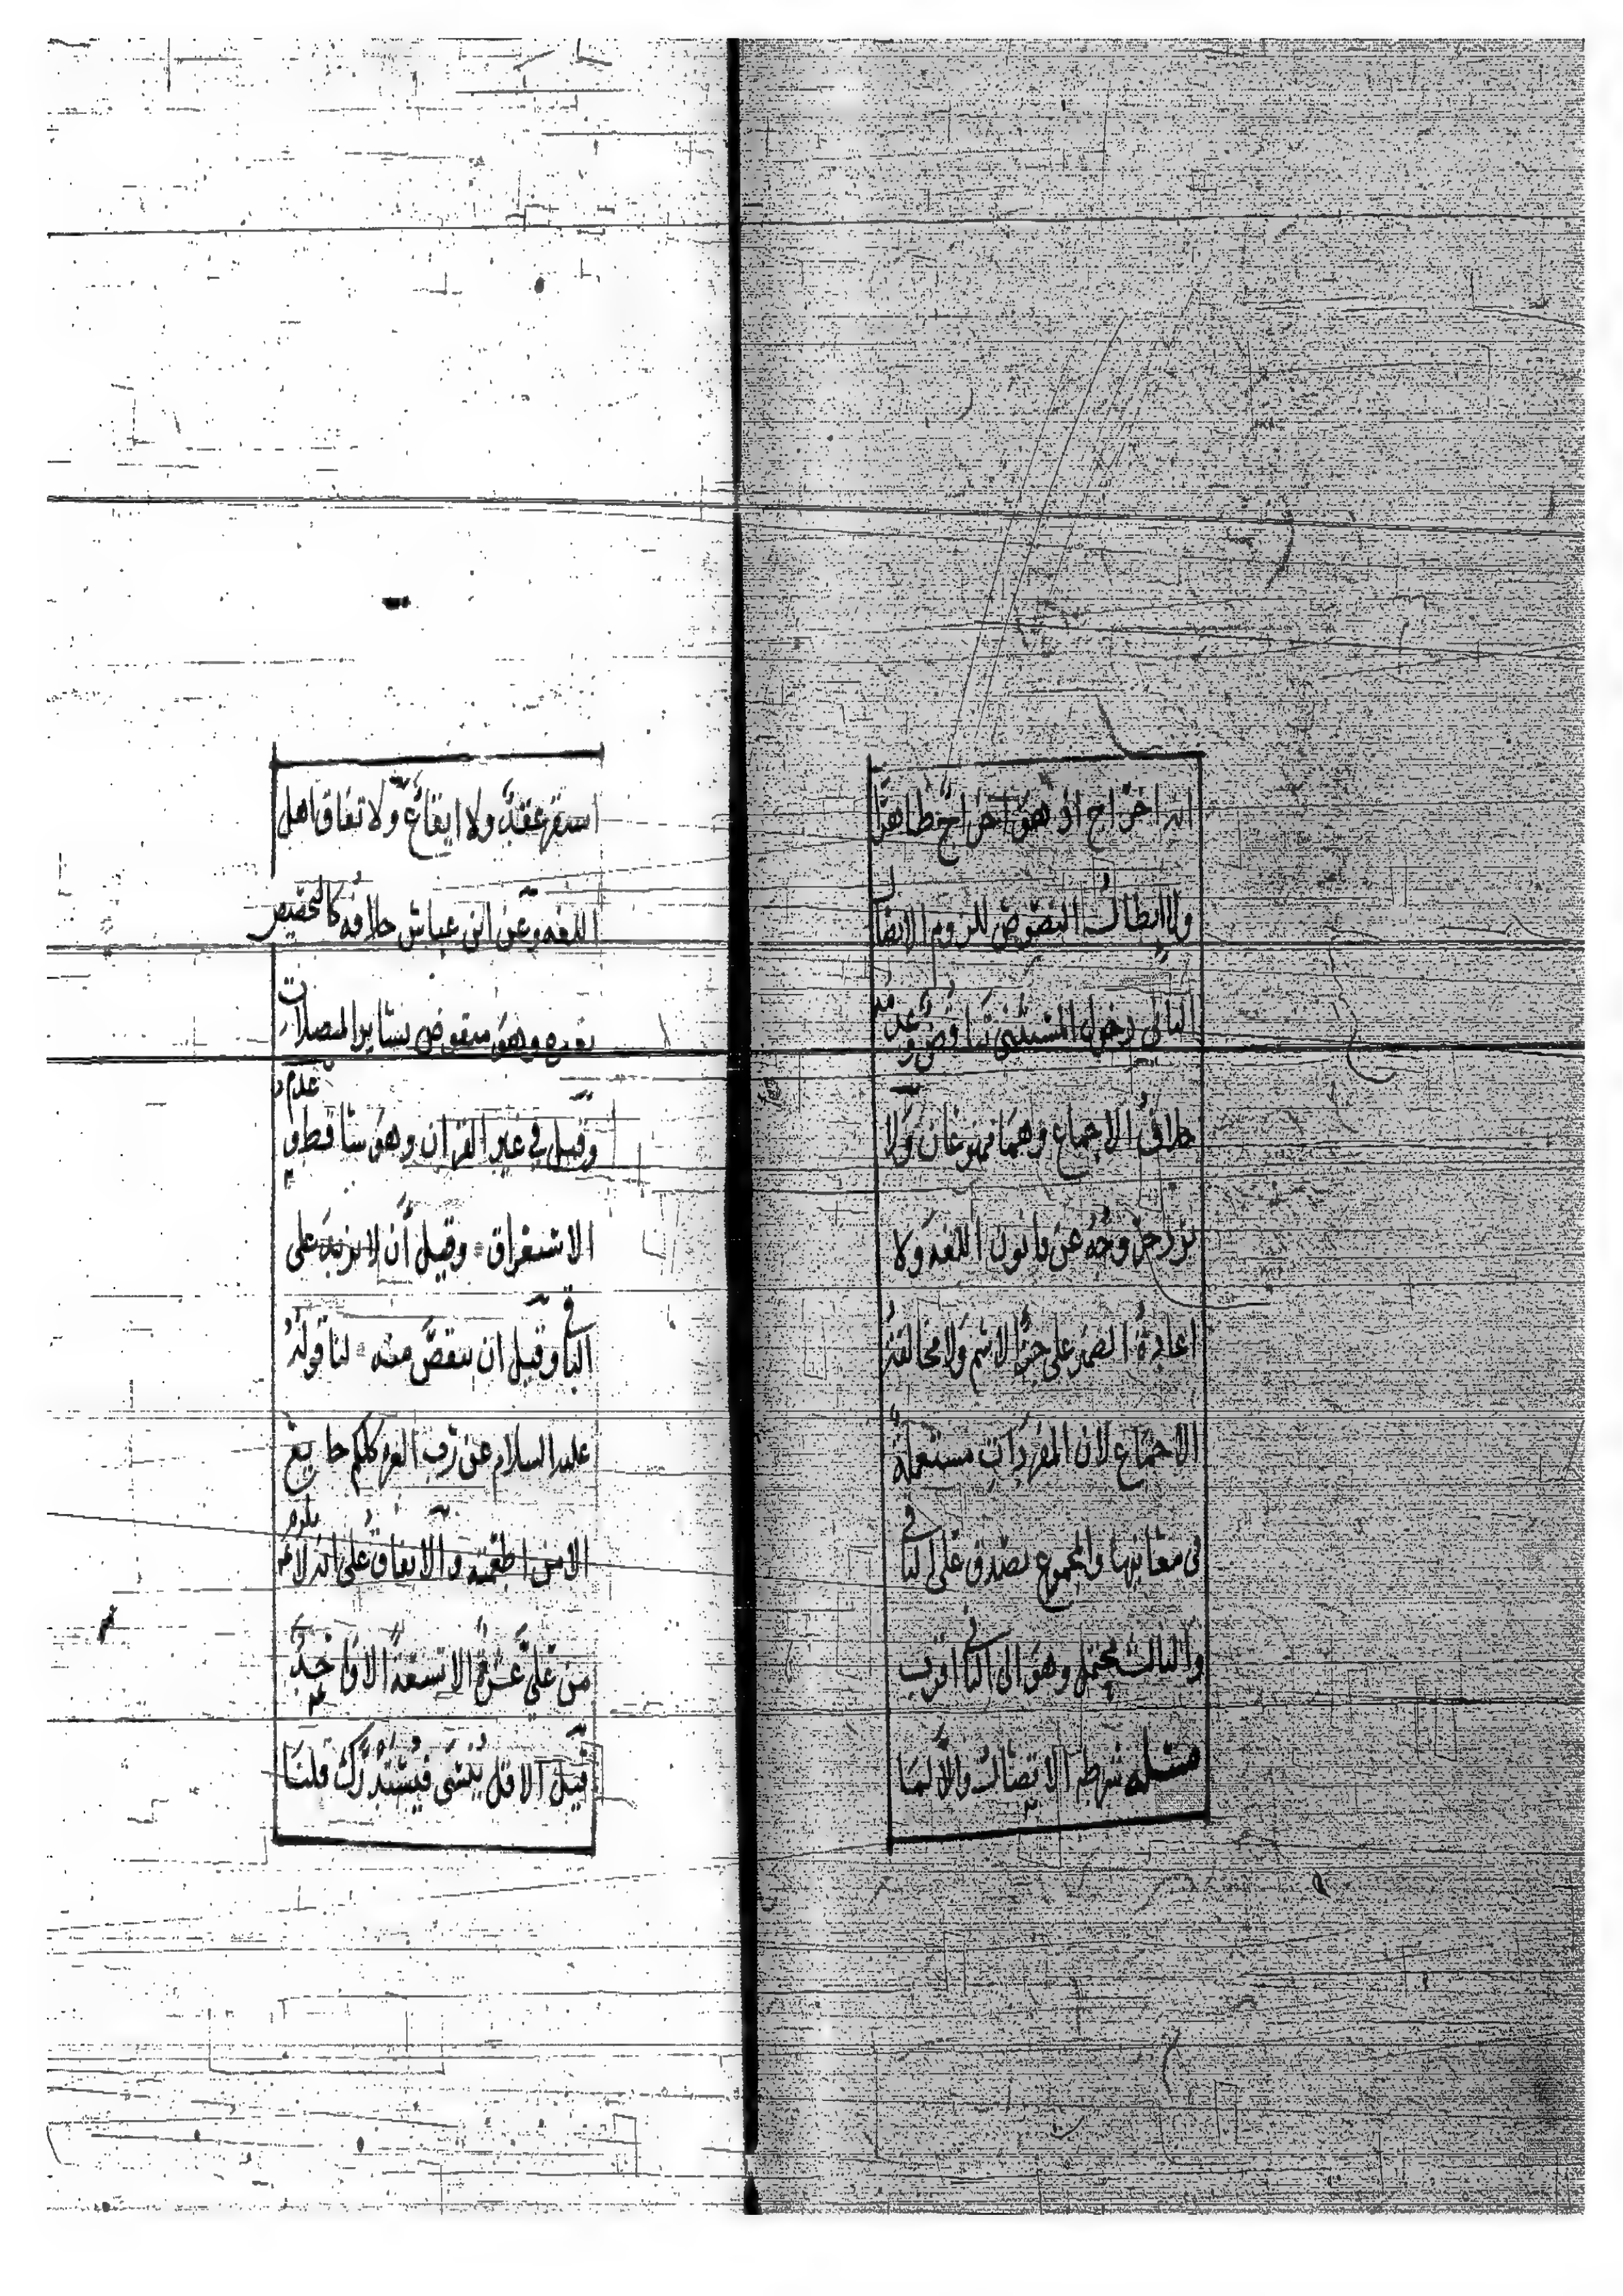 انه اخراج اذ هو اخراج ظاهرًا
ولا ابطال النصوص للزوم الاتصال
الثاني دخول المستثنى تناقض وعدمه
خلاف الاجماع وهما ممنوعان ولا
نزد خروجه عن قانون اللغه ولا
اعادة الضمير على جزء الاسم ولا مخالفة
الاجماع لان المفردات مستعملة
في معانيها والمجموع يصدق على الباقي
والثالث محتمل وهو الى الثاني اقرب
مسئلة شرطه الاتصال والا لما
استقر عقد ولا ايقاع ولاتفاق اهل
اللغه وعن ابن عباس خلافه كالتخصيص
بغيره وهو منقوض بسائر المتصلات
وقيل في غير القران وهو ساقط وعدم
الاستغراق وقيل أن لا يزيد على
الباقي وقيل ان ينقص منه لنا قوله
عليه السلام عن رب العزه كلكم جايع
الا من اطعمته والاتفاق على انه لا يلزم
من علي عشرة الا تسعة الا واحد
قيل الاقل ينسى فيستدرك قلنا